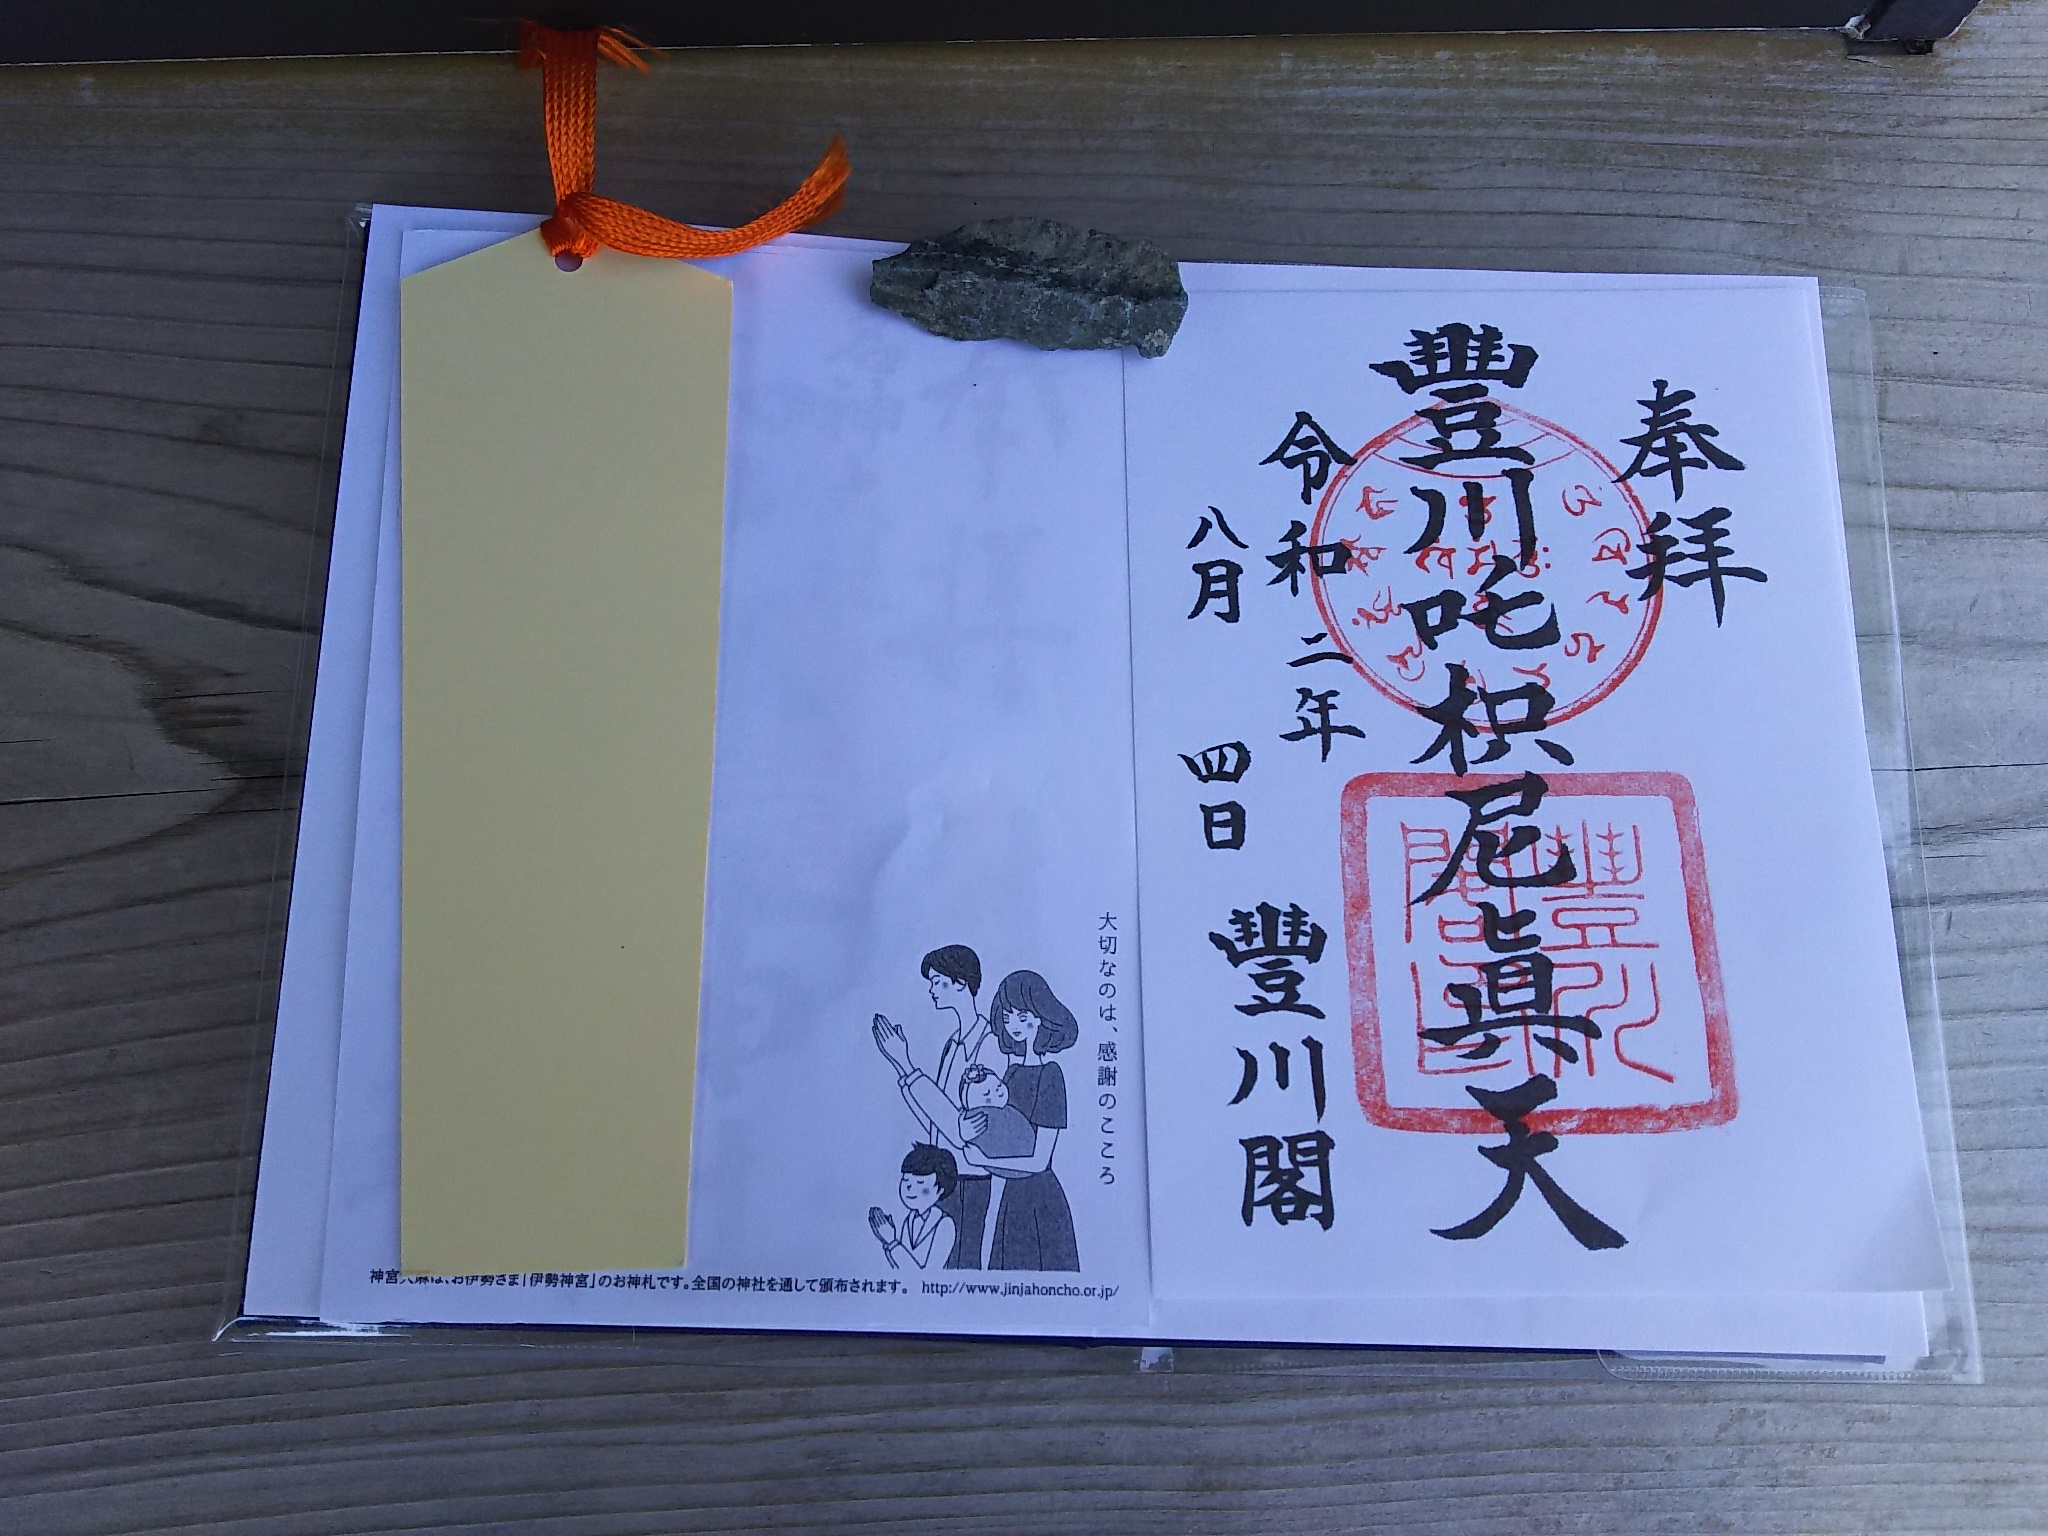 奉拝
豐川吒枳尼眞天
令和二年
八月四日
豐川閣
豐川閣
大切なのは、感謝のこころ
神宮大麻は、お伊勢さま「伊勢神宮」のお神札です。全国の神社を通して頒布されます。 http://www.jinjahoncho.or.jp/